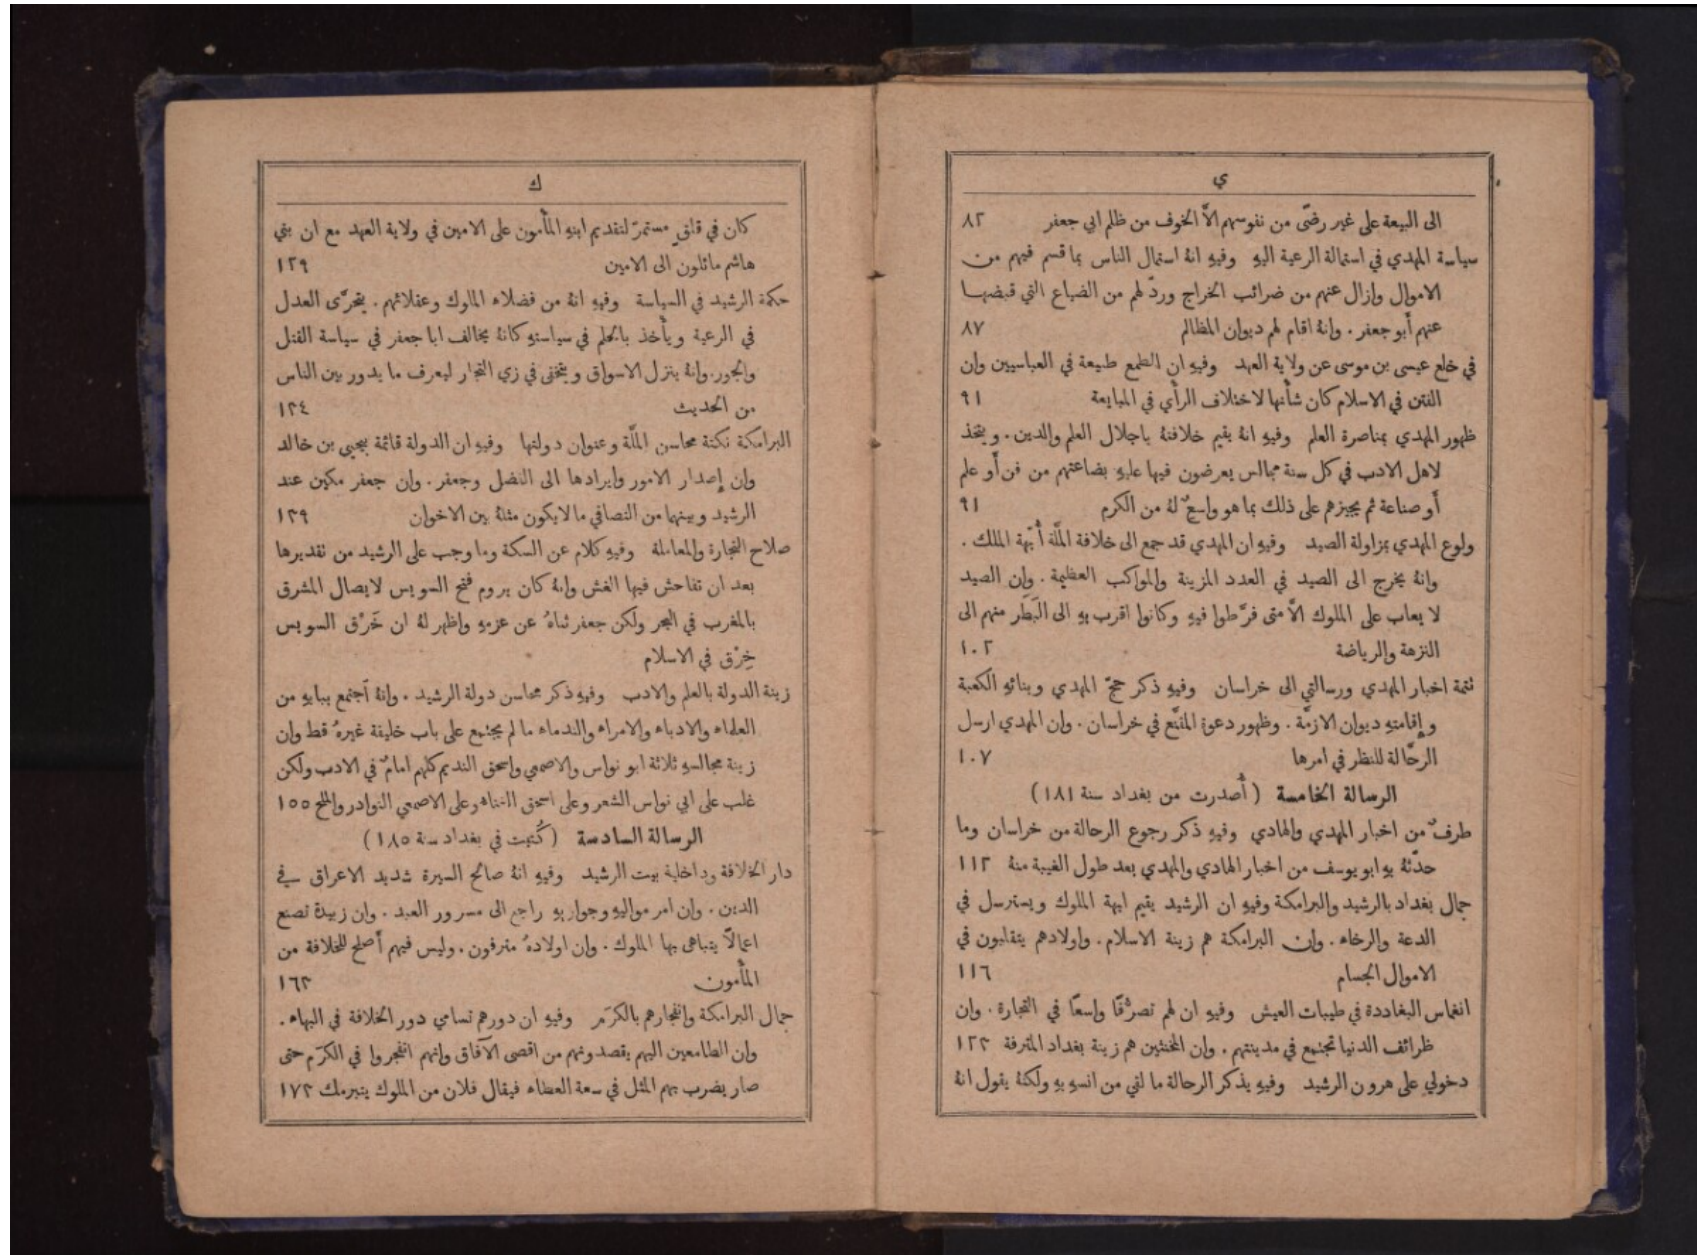 ي
الى البيعة على غير رضًى من نفوسهم الَّا الخوف من ظلم ابي جعفر ٨٢
سياسة المهدي في استمالة الرعية اليهِ وفيهِ انهُ استمال الناس بما قسم فيهم من
الاموال وازال عنهم من ضرائب الخراج وردّ لهم من الضياع التي قبضها
عنهم أَبو جعفر . وانهُ اقام لهم ديوان المظالم ٨٧
في خلع عيسى بن موسى عن ولاية العهد وفيهِ ان الطمع طبيعة في العباسيين وان
الفتن في الاسلام كان شأنها لاختلاف الرأي في المبايعة ٩١
ظهور المهدي بمناصرة العلم وفيهِ انهُ يقيم خلافتهُ باجلال العلم والدين . ويتخذ
لاهل الادب في كل سنة مجالس يعرضون فيها عليهِ بضاعتهم من فن أَو علم
أَو صناعة ثم يجيزهم على ذلك بما هو واسعٌ لهُ من الكرم ٩١
ولوع المهدي بمزاولة الصيد وفيهِ ان المهدي قد جمع الى خلافة الملَّة أُبّهة الملك .
وانهُ يخرج الى الصيد في العدد المزينة والمواكب العظيمة . وان الصيد
لا يعاب على الملوك الَّا متى فرَّطوا فيهِ وكانوا اقرب بهِ الى البَطَر منهم الى
النزهة والرياضة ١٠٢
تتمة اخبار المهدي ورسالتي الى خراسان وفيهِ ذكر حجّ المهدي وبنائهِ الكعبة
وإِقامتهِ ديوان الازمَّة . وظهور دعوة المقنَّع في خراسان . وان المهدي ارسل
الرحَّالة للنظر في امرها ١٠٧
الرسالة الخامسة ( أُصدرت من بغداد سنة ١٨١ )
طرفٌ من اخبار المهدي والهادي وفيهِ ذكر رجوع الرحالة من خراسان وما
حدّثهُ بهِ ابو يوسف من اخبار الهادي والمهدي بعد طول الغيبة منهُ ١١٢
جمال بغداد بالرشيد والبرامكة وفيهِ ان الرشيد يقيم ابهة الملوك ويسترسل في
الدعة والرخاء . وان البرامكة هم زينة الاسلام . واولادهم يتقلبون في
الاموال الجسام ١١٦
انغماس البغاددة في طيبات العيش وفيهِ ان لهم تصرُّفًا واسعًا في التجارة . وان
ظرائف الدنيا تجتمع في مدينتهم . وان المخنثين هم زينة بغداد المترفة ١٢٣
دخولي على هرون الرشيد وفيهِ يذكر الرحالة ما لقي من انسهِ بهِ ولكنهُ يقول انهُ
ك
كان في قلقٍ مستمرّ لتقديم ابنهِ المأمون على الامين في ولاية العهد مع ان بني
هاشم مائلون الى الامين ١٢٩
حكمة الرشيد في السياسة وفيهِ انهُ من فضلاء الملوك وعقلائهم . يتحرَّى العدل
في الرعية ويأخذ بالحلم في سياستهِ كانهُ يخالف ابا جعفر في سياسة القتل
والجور. وانهُ ينزل الاسواق ويتخفى في زي التجار ليعرف ما يدور بين الناس
من الحديث ١٣٤
البرامكة نكتة محاسن الملَّة وعنوان دولتها وفيهِ ان الدولة قائمة بيحيى بن خالد
وان إِصدار الامور وايرادها الى الفضل وجعفر . وان جعفر مكين عند
الرشيد وبينهما من التصافي ما لا يكون مثلهُ بين الاخوان ١٣٩
صلاح التجارة والمعاملة وفيهِ كلام عن السكة وما وجب على الرشيد من تقديرها
بعد ان تفاحش فيها الغش وانهُ كان يروم فتح السويس لايصال المشرق
بالمغرب في البحر ولكن جعفر ثناهُ عن عزمهِ واظهر لهُ ان خَرْق السويس
خِرْق في الاسلام
زينة الدولة بالعلم والادب وفيهِ ذكر محاسن دولة الرشيد . وانهُ اجتمع ببابهِ من
العلماء والادباء والامراء والندماء ما لم يجتمع على باب خليفة غيرهُ قط وان
زينة مجالسهِ ثلاثة ابو نواس والاصمعي واسحق النديم كلهم امامٌ في الادب ولكن
غلب على ابي نواس الشعر وعلى اسحق الغناء وعلى الاصمعي النوادر والملح ١٥٥
الرسالة السادسة ( كُتبت في بغداد سنة ١٨٥ )
دار الخلافة وداخلية بيت الرشيد وفيهِ انهُ صالح السيرة شديد الاعراق في
الدين . وان امر مواليهِ وجواريهِ راجع الى مسرور العبد . وان زبيدة تصنع
اعمالًا يتباهى بها الملوك . وان اولادهُ مترفون . وليس فيهم أَصلح للخلافة من
المأمون ١٦٣
جمال البرامكة وانفجارهم بالكرَم وفيهِ ان دورهم تسامي دور الخلافة في البهاء .
وان الطامعين اليهم يقصدونهم من اقصى الآفاق وانهم انفجروا في الكرَم حتى
صار يضرب بهم المثل في سعة العطاء فيقال فلان من الملوك يتبرمك ١٧٣